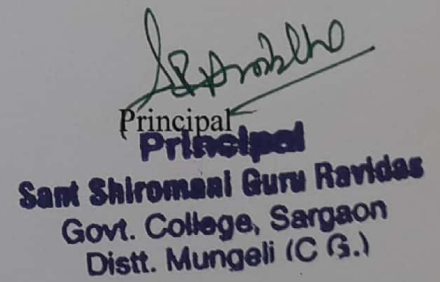 Principal
Principal
Sant Shiromani Guru Ravidas
Govt. College, Sargaon
Distt. Mungeli (C G.)